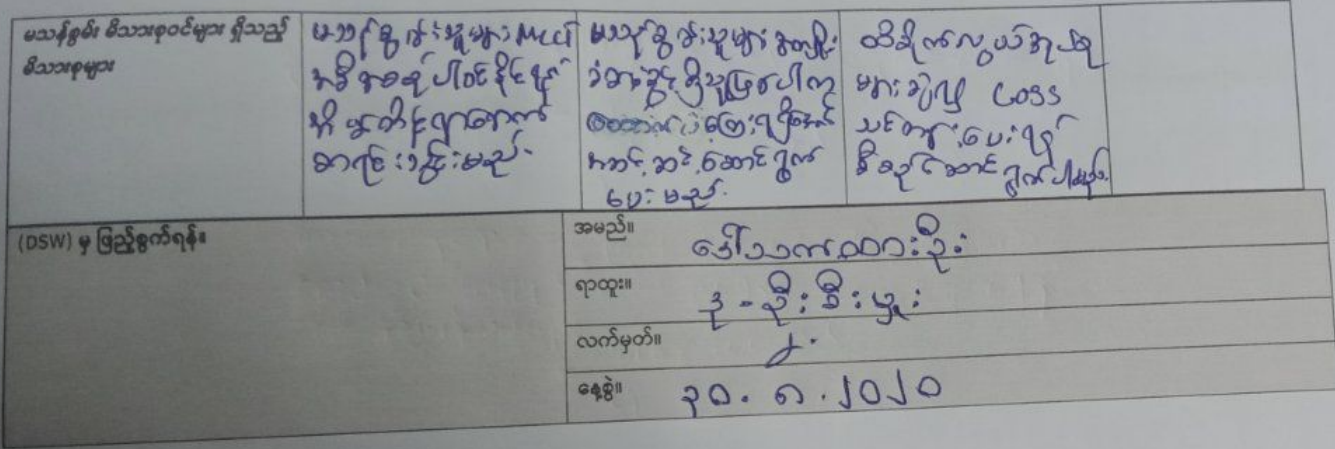 မသန်စွမ်း မိသားစုဝင်များ ရှိသည့်
မိသားစုများ
မသန်စွမ်းသူများ MCCT
အစီအစဉ် ပါဝင်နိုင်ရန်
အိမ်တိုင်ရာရောက်
စာရင်းသွင်းမည်.
မသန်စွမ်းသူများ အကျိုး
ခံစားခွင့် ရှိသူဖြစ်ပါက
ကြေးရရှိအောင်
အဆင့်ဆင့် ဆောင်ရွက်
ပေးမည်.
ထိခိုက်လွယ်အုပ်စု
များ ဆိုလျှင် COSS
သင်တန်းပေးရန်
စီစဉ်ဆောင်ရွက်ပါမည်။
(DSW) မှ ဖြည့်စွက်ရန်။
အမည်။ ဒေါ်သက်ထားဦး
ရာထူး။ ဒု-ဦးစီးမှူး
လက်မှတ်။
နေ့စွဲ။ ၃၀.၈.၂၀၂၀